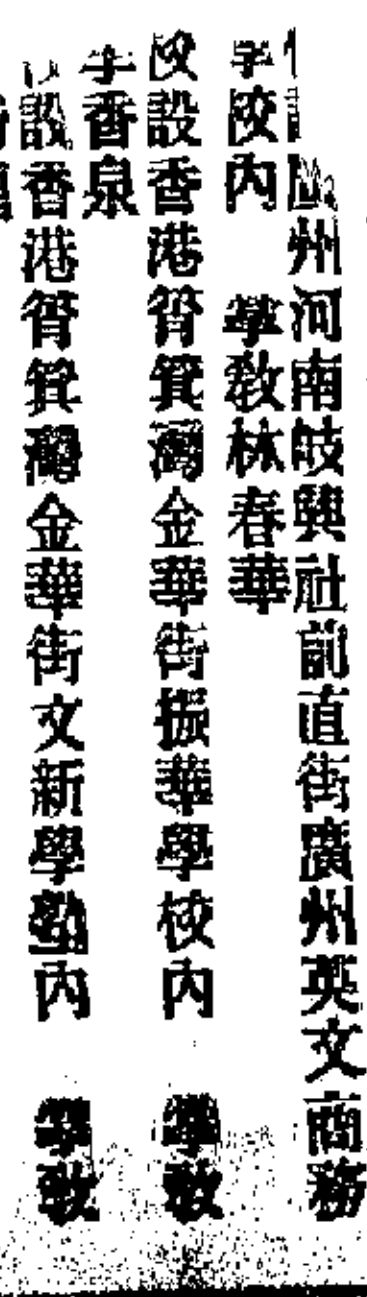 州河南岐興社前直街廣州英文商務
學校內 掌教林春華
設香港筲箕灣金華街振華學校內 掌教
李香泉
設香港筲箕灣金華街文新學塾內 掌教